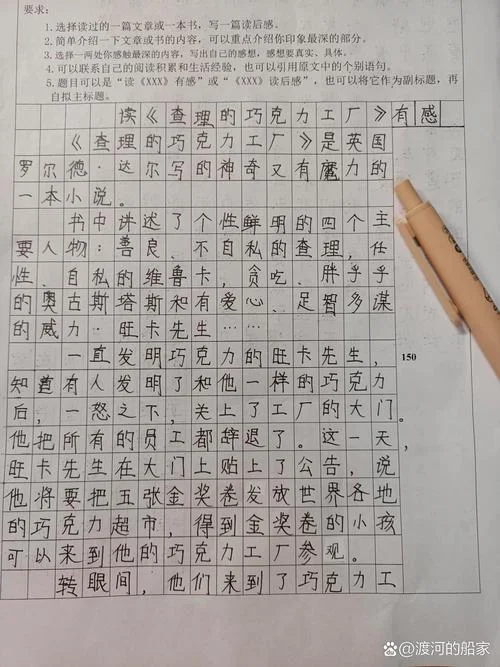 要求：
1. 选择读过的一篇文章或一本书，写一篇读后感。
2. 简单介绍一下文章或书的内容，可以重点介绍你印象最深的部分。
3. 选择一两处你感触最深的内容，写出自己的感想，感想要真实、具体。
4. 可以联系自己的阅读积累和生活经验，也可以引用原文中的个别语句。
5. 题目可以是“读《XXX》有感”或“《XXX》读后感”，也可以将它作为副标题，再
自拟主标题。
读《查理的巧克力工厂》有感
《查理的巧克力工厂》是英国
罗尔德·达尔写的神奇又有魔力的
一本小说。
书中讲述了个性鲜明的四个主
要人物：善良、不自私的查理，任
性、自私的维鲁卡，贪吃、胖乎乎
的奥古斯塔斯和有爱心、足智多谋
的威力·旺卡先生……
一直发明巧克力的旺卡先生，
150
知道有人发明了和他一样的巧克力
后，一怒之下，关上了工厂的大门。
他把所有的员工都辞退了。这一天，
旺卡先生在大门上贴上了公告，说
他将要把五张金奖卷发放世界各地
的巧克力超市，得到金奖卷的小孩
可以来到他的巧克力工厂参观。
转眼间，他们来到了巧克力工
@渡河的船家